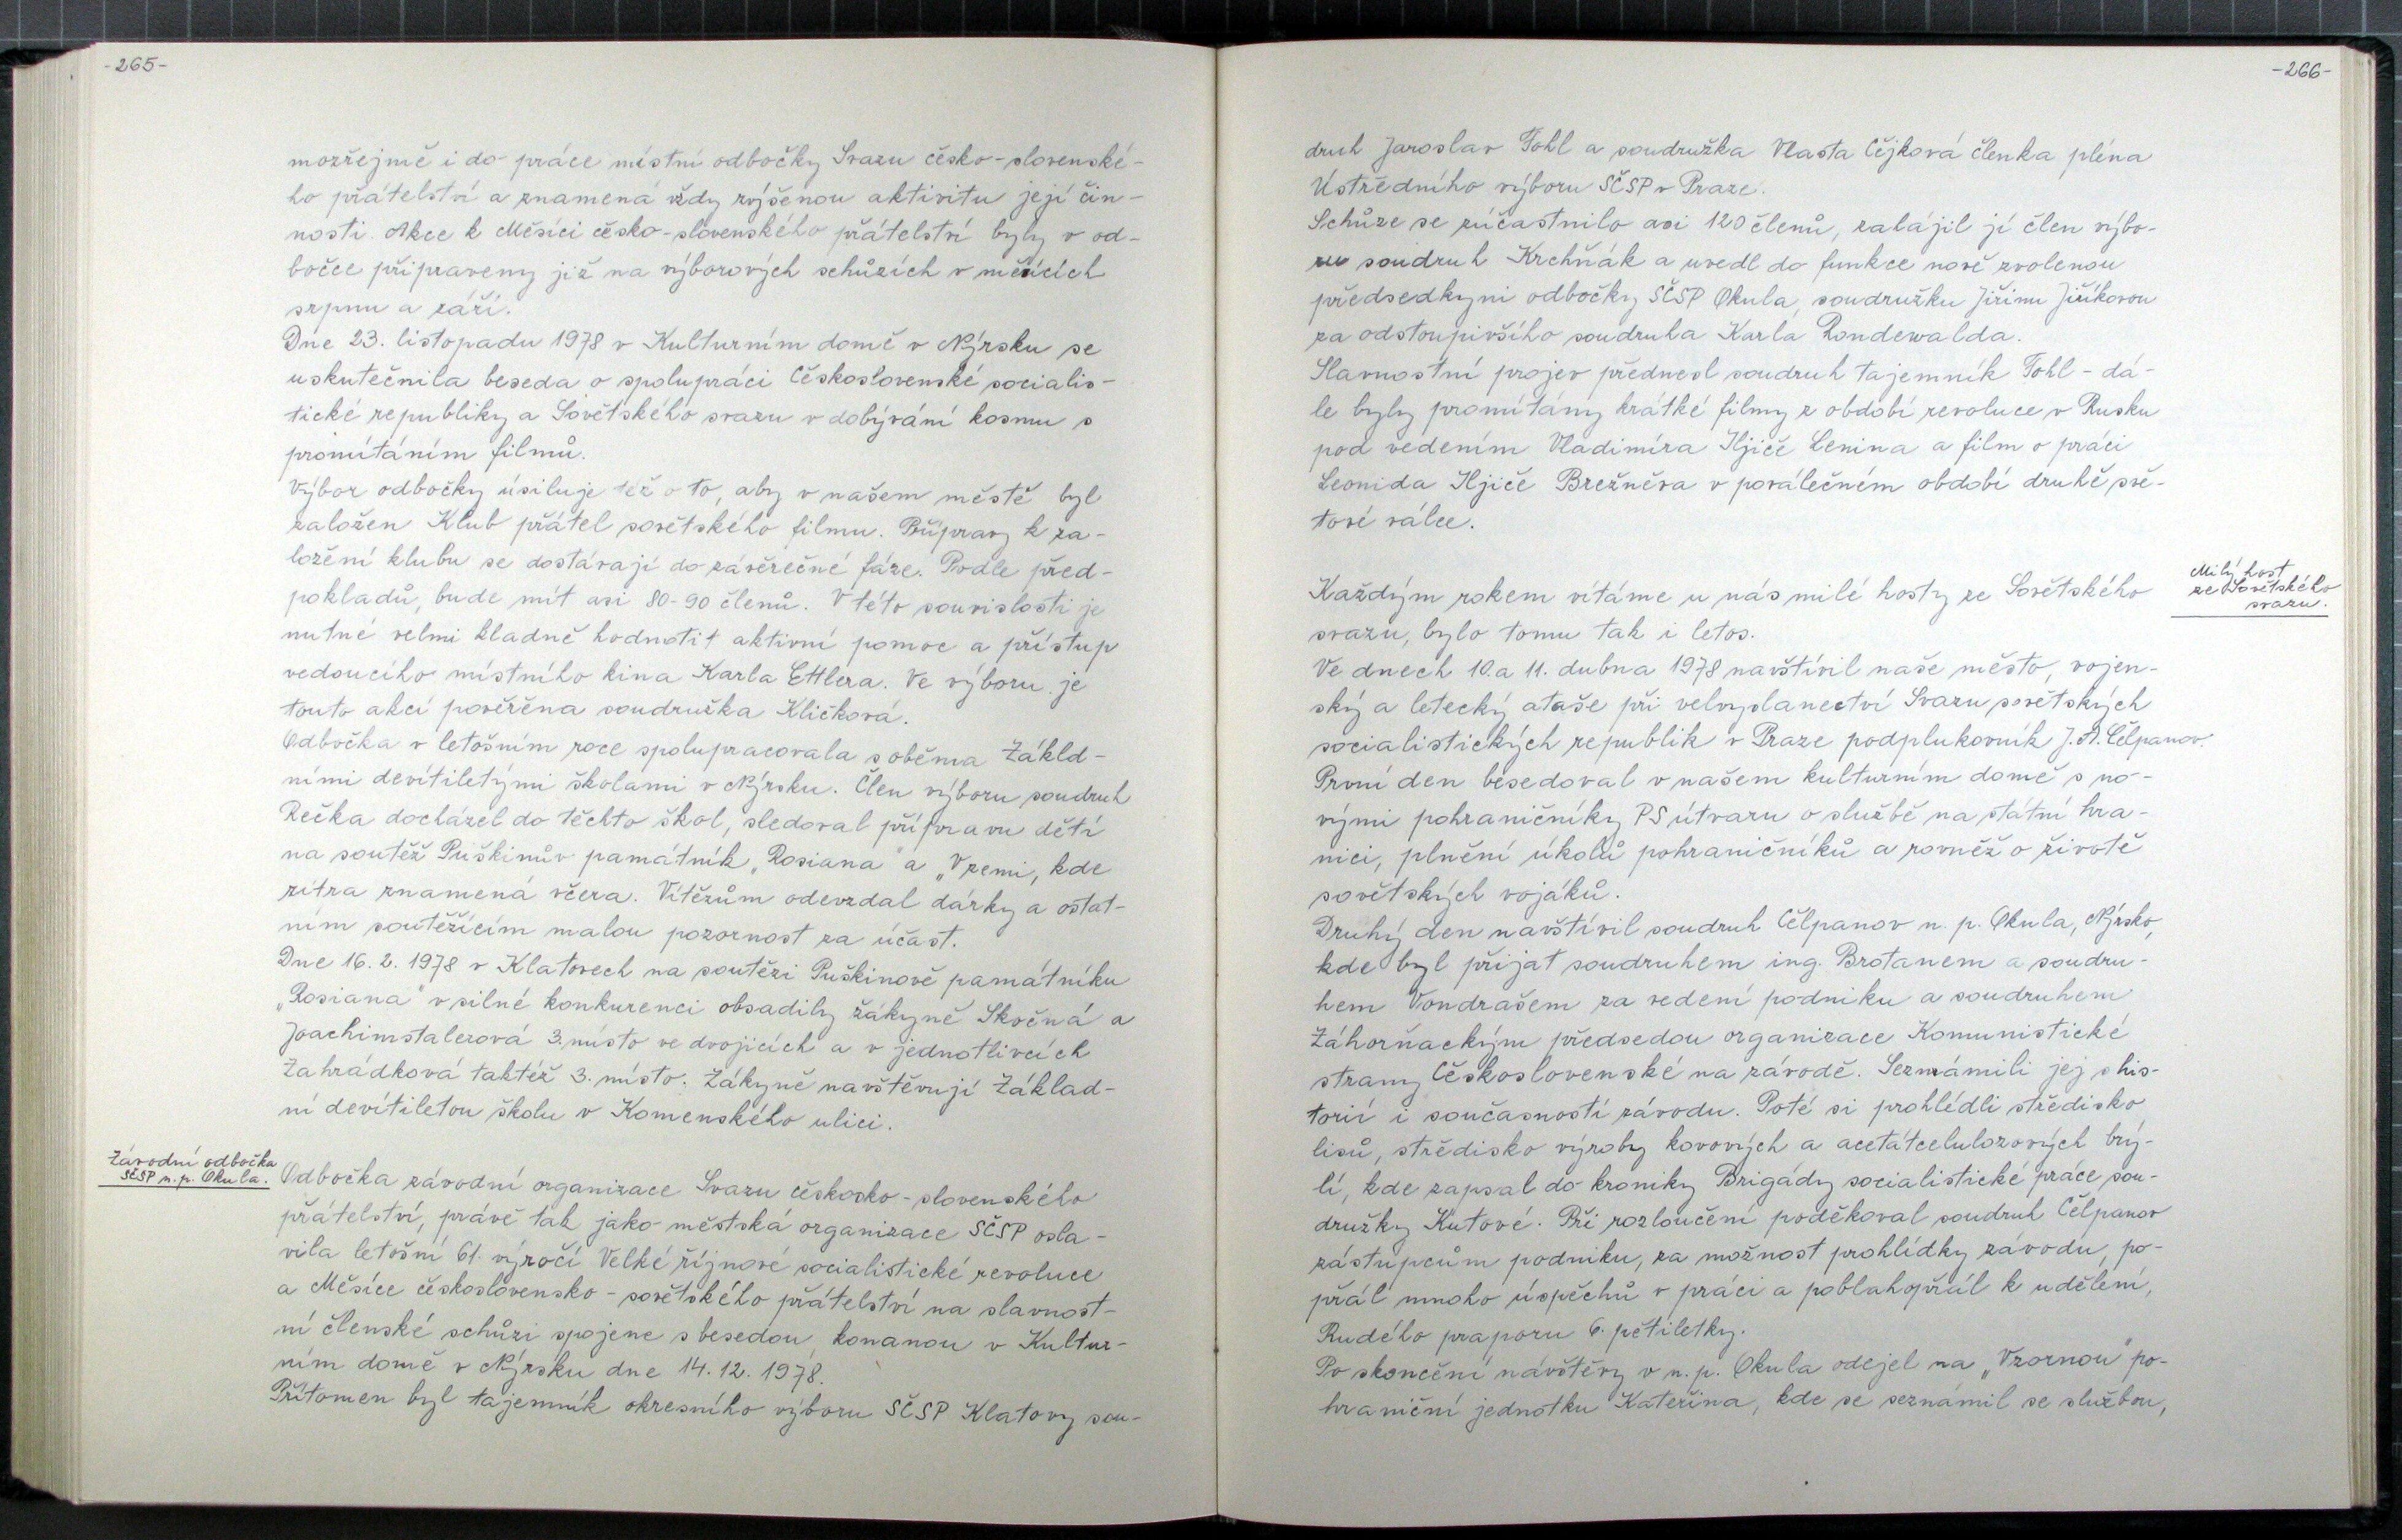 -265-
mozřejmě i do práce místní odbočky Svazu česko-slovenské-
ho přátelství a znamená vždy zvýšenou aktivitu její čin-
nosti. Akce k Měsíci česko-slovenského přátelství byly v od-
bočce připraveny již na výborových schůzích v měsících
srpnu a září.
Dne 23. listopadu 1978 v Kulturním domě v Nýrsku se
uskutečnila beseda o spolupráci Československé socialis-
tické republiky a Sovětského svazu v dobývání kosmu s
promítáním filmů.
Výbor odbočky úsiluje též o to, aby v našem městě byl
založen Klub přátel sovětského filmu. Přípravy k za-
ložení klubu se dostávají do závěrečné fáze. Podle před-
pokladů, bude mít asi 80-90 členů. V této souvislosti je
nutné velmi kladně hodnotit aktivní pomoc a přístup
vedoucího místního kina Karla Ettlera. Ve výboru je
touto akcí pověřěna soudružka Kličková.
Odbočka v letošním roce spolupracovala s oběma Zákld-
ními devítiletými školami v Nýrsku. Člen výboru soudruh
Rečka docházel do těchto škol, sledoval přípravu dětí
na soutěž Puškinův památník „Rosiana" a „Vremi, kde
zítra znamená včera. Vítězům odevzdal dárky a ostat-
ním soutěžícím malou pozornost za účast.
Dne 16. 2. 1978 v Klatovech na soutěži Puškinově památníku
„Rosiana" v silné konkurenci obsadily žákyně Skočná a
Joachimstalerová 3. místo ve dvojicích a v jednotlivcích
Zahrádková taktéž 3. místo. Žákyně navštěvují Základ-
ní devítiletou školu v Komenského ulici.
Závodní odbočka
SČSP n. p. Okula.
Odbočka závodní organizace Svazu českosko-slovenského
přátelství, právě tak jako městská organizace SČSP osla-
vila letošní 61. výročí Velké říjnové socialistické revoluce
a Měsíce československo-sovětského přátelství na slavnost-
ní členské schůzi spojene s besedou, konanou v Kultur-
ním domě v Nýrsku dne 14. 12. 1978.
Přítomen byl tajemník okresního výboru SČSP Klatovy sou-
-266-
druh Jaroslav Tohl a soudružka Vlasta Čéjková členka pléna
Ústředního výboru SČSP v Praze.
Schůze se zúčastnilo asi 120 členů, zahájil jí člen výbo-
ru soudruh Krchňák a uvedl do funkce nově zvolenou
předsedkyni odbočky SČSP Okula, soudružku Jiřinu Jiříkovou
za odstoupivšího soudruha Karla Rondewalda.
Slavnostní projev přednesl soudruh tajemník Tohl - dá-
le byly promítány krátké filmy z období revoluce v Rusku
pod vedením Vladimíra Iljiče Lenina a film o práci
Leonida Iljiče Brežněva v poválečném období druhé svě-
tové válce.
Milý host
ze Sovětského
svazu.
Každým rokem vítáme u nás milé hosty ze Sovětského
svazu, bylo tomu tak i letos.
Ve dnech 10. a 11. dubna 1978 navštívil naše město, vojen-
ský a letecký ataše při velvyslanectví Svazu sovětských
socialistických republik v Praze podplukovník J. A. Čelpanov.
První den besedoval v našem kulturním domě s no-
vými pohraničníky PS útvaru o službě na státní hra-
nici, plnění úkolů pohraničníků a rovněž o životě
sovětských vojáků.
Druhý den navštívil soudruh Čelpanov n. p. Okula, Nýrsko,
kde byl přijat soudruhem ing. Brotanem a soudru-
hem Vondrašem za vedení podniku a soudruhem
Záhorňackým předsedou organizace Komunistické
strany Československé na závodě. Seznámili jej s his-
torií i současností závodu. Poté si prohlédli středisko
lisů, středisko výroby kovových a acetátcelulozových brý-
lí, kde zapsal do kroniky Brigády socialistické práce sou-
družky Kutové. Při rozloučení poděkoval soudruh Čelpanov
zástupcům podniku, za možnost prohlídky závodu, po-
přál mnoho úspěchů v práci a poblahopřál k udělení,
Rudého praporu 6. pětiletky.
Po skončení návštěvy v n. p. Okula odejel na „Vzornou" po-
hraniční jednotku Kateřina, kde se seznámil se službou,